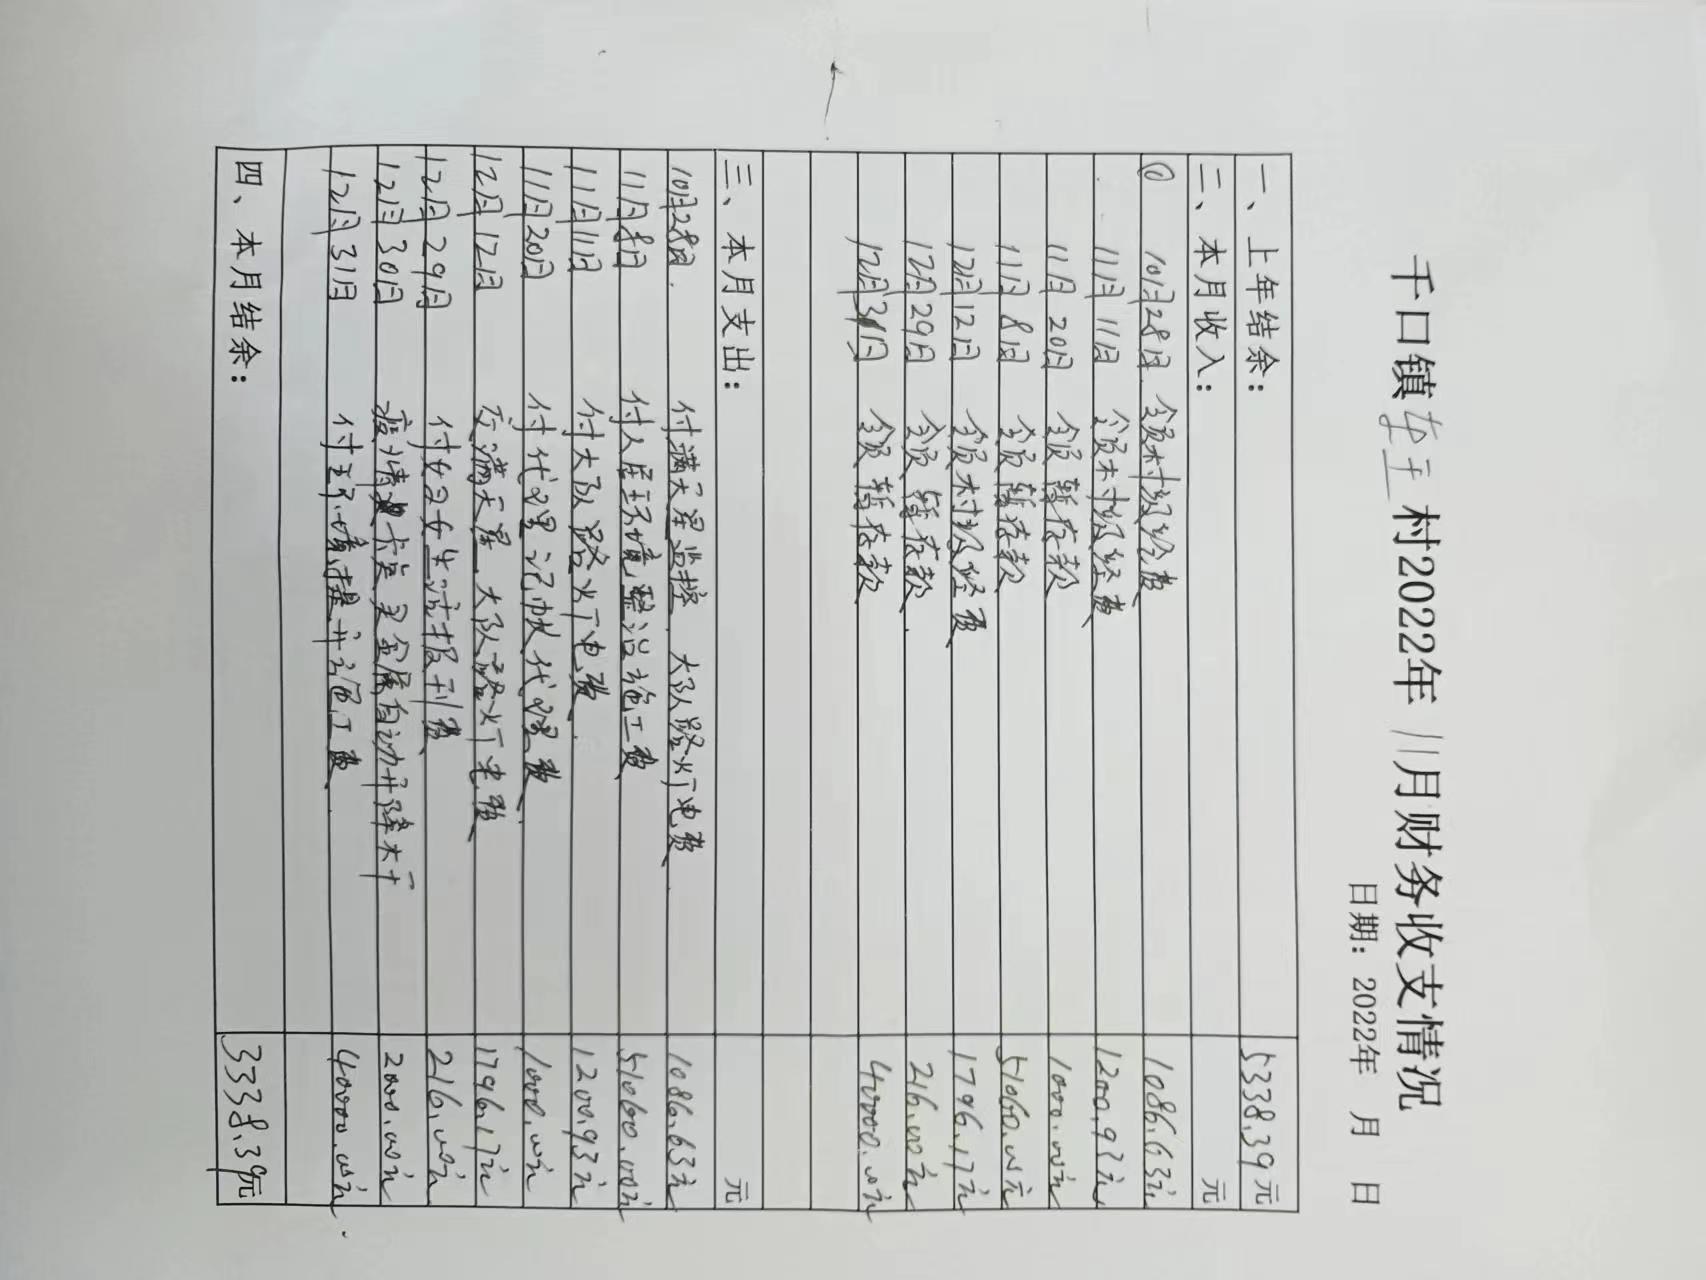 千口镇车王村2022年11月财务收支情况
日期：2022年 月 日
一、上年结余： 5338.39元
二、本月收入： 元
① 10月28日 领村级经费 1086.63元
11月11日 领村级经费 1200.93元
11月20日 领暂存款 1000.00元
11月8日 领暂存款 51060.00元
12月12日 领村级经费 1796.17元
12月29日 领暂存款 216.00元
12月31日 领暂存款 40000.00元
三、本月支出： 元
10月28日 付满天星监控、大队路灯电费 1086.63元
11月8日 付人居环境整治施工费 51060.00元
11月11日 付大队路灯电费 1200.93元
11月20日 付代理记帐代理费 1000.00元
12月12日 交满天星、大队路灯电费 1796.17元
12月29日 付妇女生活报刊费 216.00元
12月30日 疫情卡点买金属自动升降杆 2000.00元
12月31日 付环境提升施工费 40000.00元
四、本月结余： 3338.39元